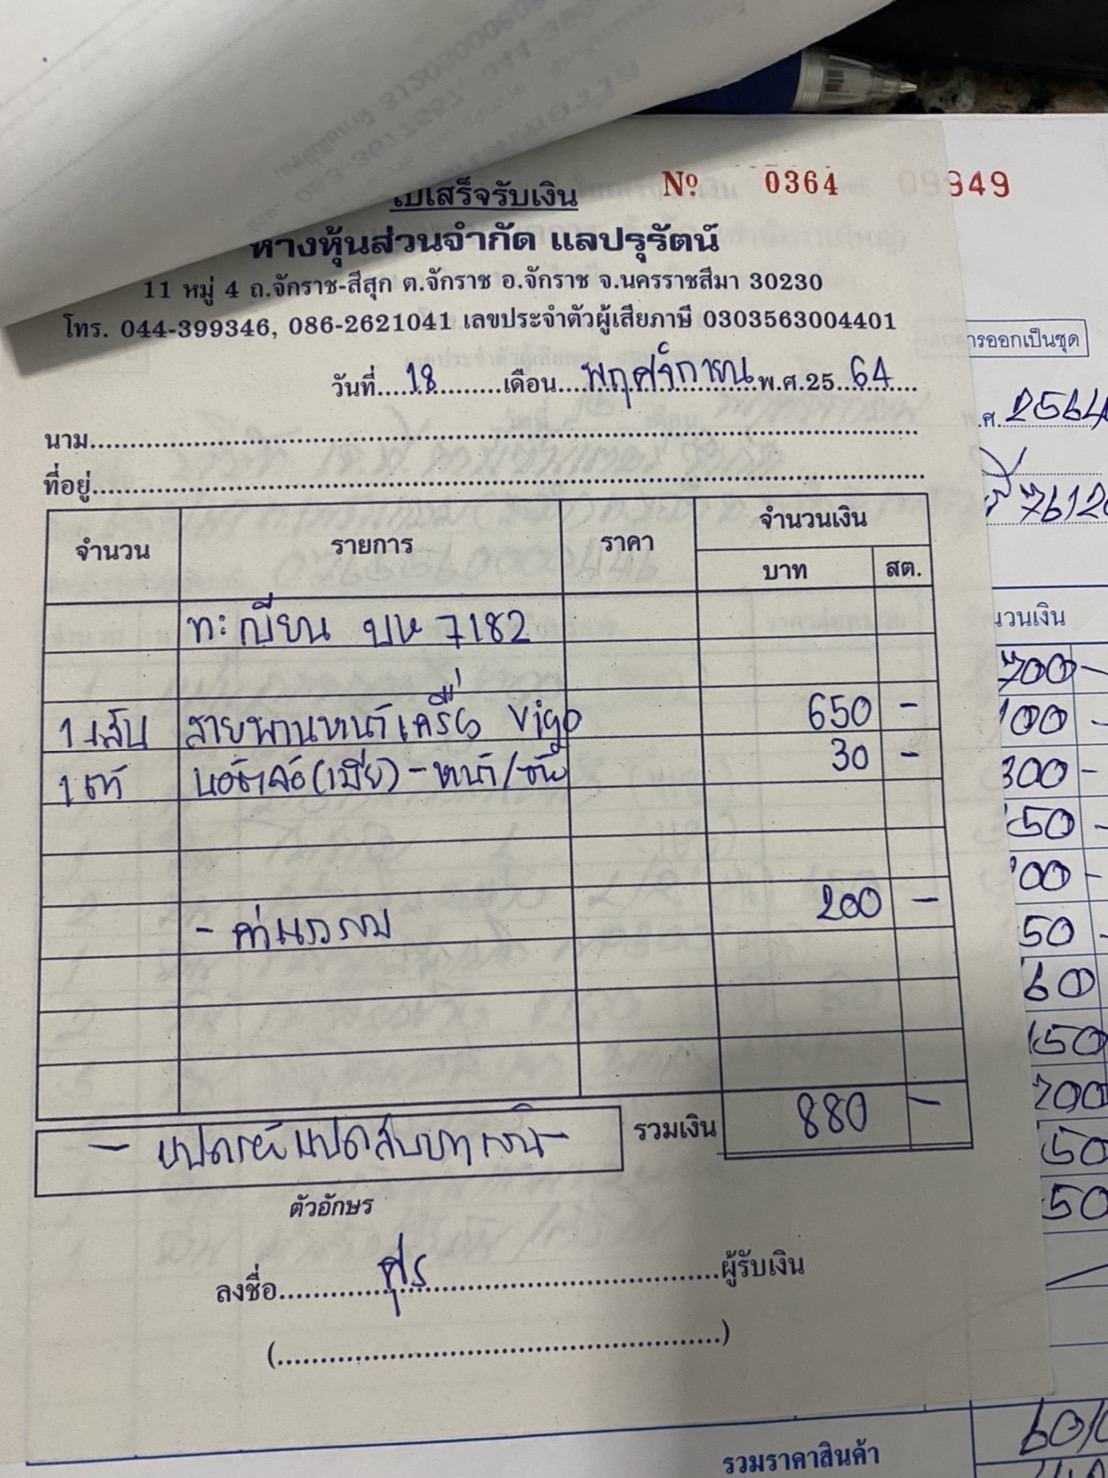 ใบเสร็จรับเงิน № 0364 09949
ห้างหุ้นส่วนจำกัด แลปรุรัตน์
11 หมู่ 4 ถ.จักราช-สีสุก ต.จักราช อ.จักราช จ.นครราชสีมา 30230
โทร. 044-399346, 086-2621041 เลขประจำตัวผู้เสียภาษี 0303563004401
ารออกเป็นชุด
วันที่ 18 เดือน พฤศจิกายน พ.ศ.25 64
.ศ. 2564
นาม
ที่อยู่
7612
จำนวน รายการ ราคา จำนวนเงิน
บาท สต.
นวนเงิน
ทะเบียน บห 7182
1 เส้น สายพานหน้าเครื่อง Vigo 650 -
1 ตัว น๊อตล้อ(เมีย) - หน้า/ 30 -
- ค่าแรงรวม 200 -
รวมเงิน 880 -
- แปดร้อยแปดสิบบาทเงิน -
ตัวอักษร
ลงชื่อ ผู้รับเงิน
(
)
700 -
100 -
300 -
50 -
00 -
50 -
60
150
200
50
50
รวมราคาสินค้า